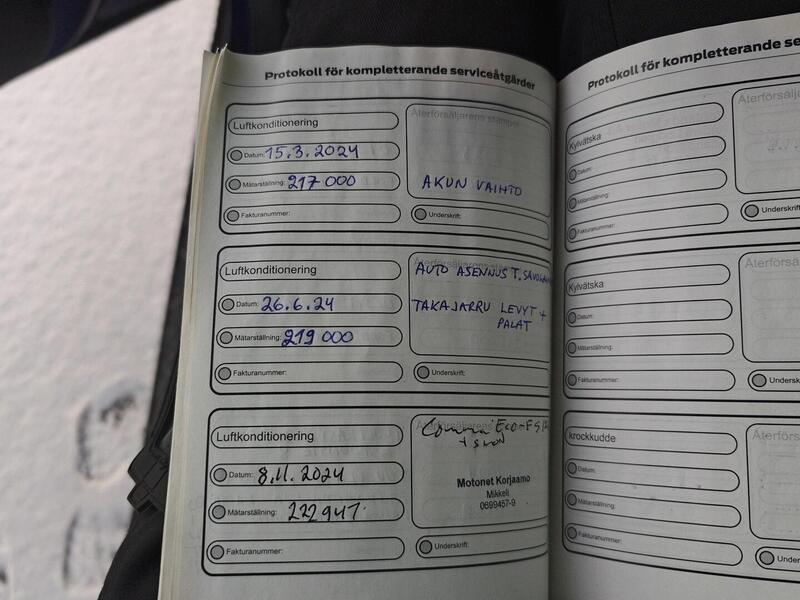 Protokoll för kompletterande serviceåtgärder
Luftkonditionering
Återförsäljarens stämpel
Datum: 15.3.2024
Mätarställning: 217 000
AKUN VAIHTO
Fakturanummer:
Underskrift:
Luftkonditionering
Återförsäljarens
AUTO ASENNUS T.
Datum: 26.6.24
TAKAJARRU LEVYT +
PALAT
Mätarställning: 219 000
Fakturanummer:
Underskrift:
Luftkonditionering
Datum: 8.11.2024
Motonet Korjaamo
Mikkeli
0699457-9
Mätarställning: 222947
Fakturanummer:
Underskrift:
Protokoll för kompletterande
Kylvätska
Datum:
Mätarställning:
Fakturanummer:
Underskrift
Kylvätska
Datum:
Mätarställning:
Fakturanummer:
Underskrift
krockkudde
Datum:
Mätarställning:
Fakturanummer:
Underskr